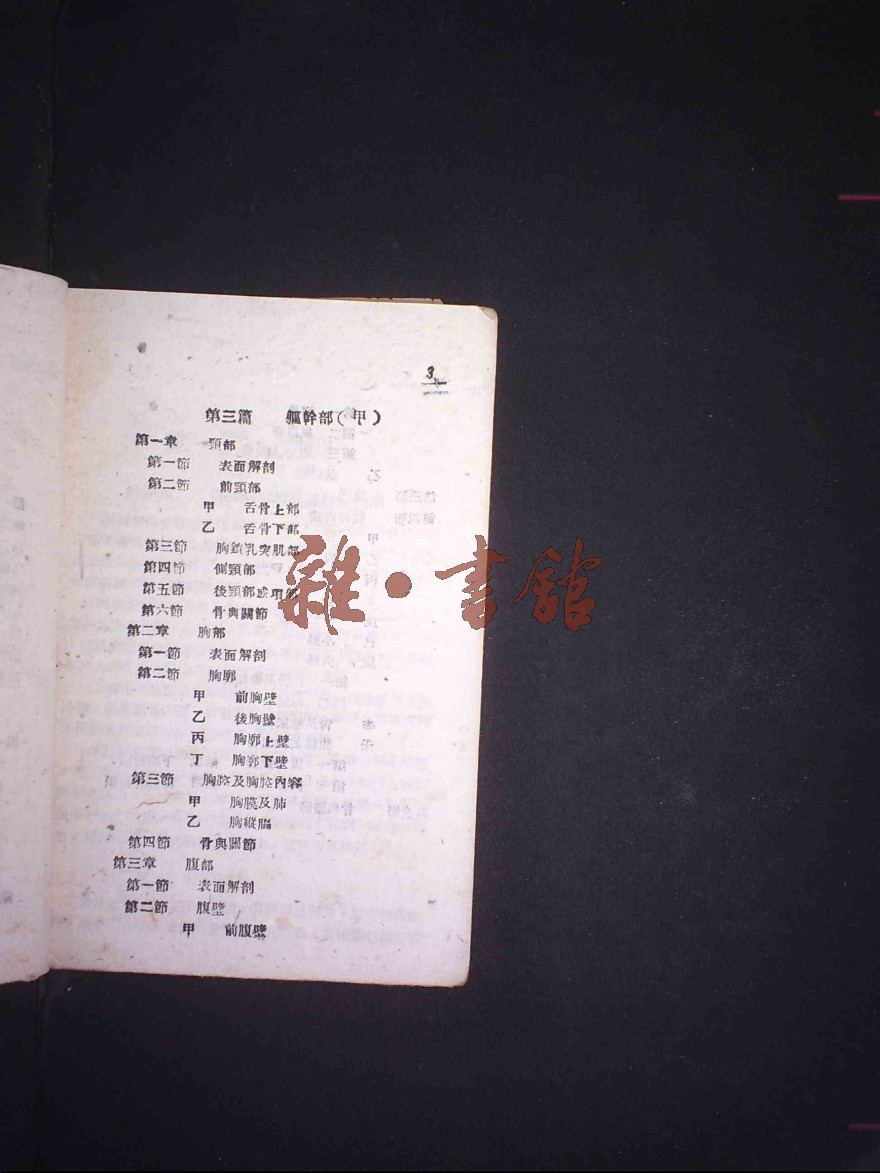 3
第三篇 軀幹部(甲)
第一章 頸部
第一節 表面解剖
第二節 前頸部
甲 舌骨上部
乙 舌骨下部
第三節 胸鎖乳突肌部
第四節 側頸部
第五節 後頸部或項部
第六節 骨與關節
第二章 胸部
第一節 表面解剖
第二節 胸廓
甲 前胸壁
乙 後胸壁
丙 胸廓上壁
丁 胸廓下壁
第三節 胸腔及胸腔內容
甲 胸膜及肺
乙 胸縱膈
第四節 骨與關節
第三章 腹部
第一節 表面解剖
第二節 腹壁
甲 前腹壁
雜·書館